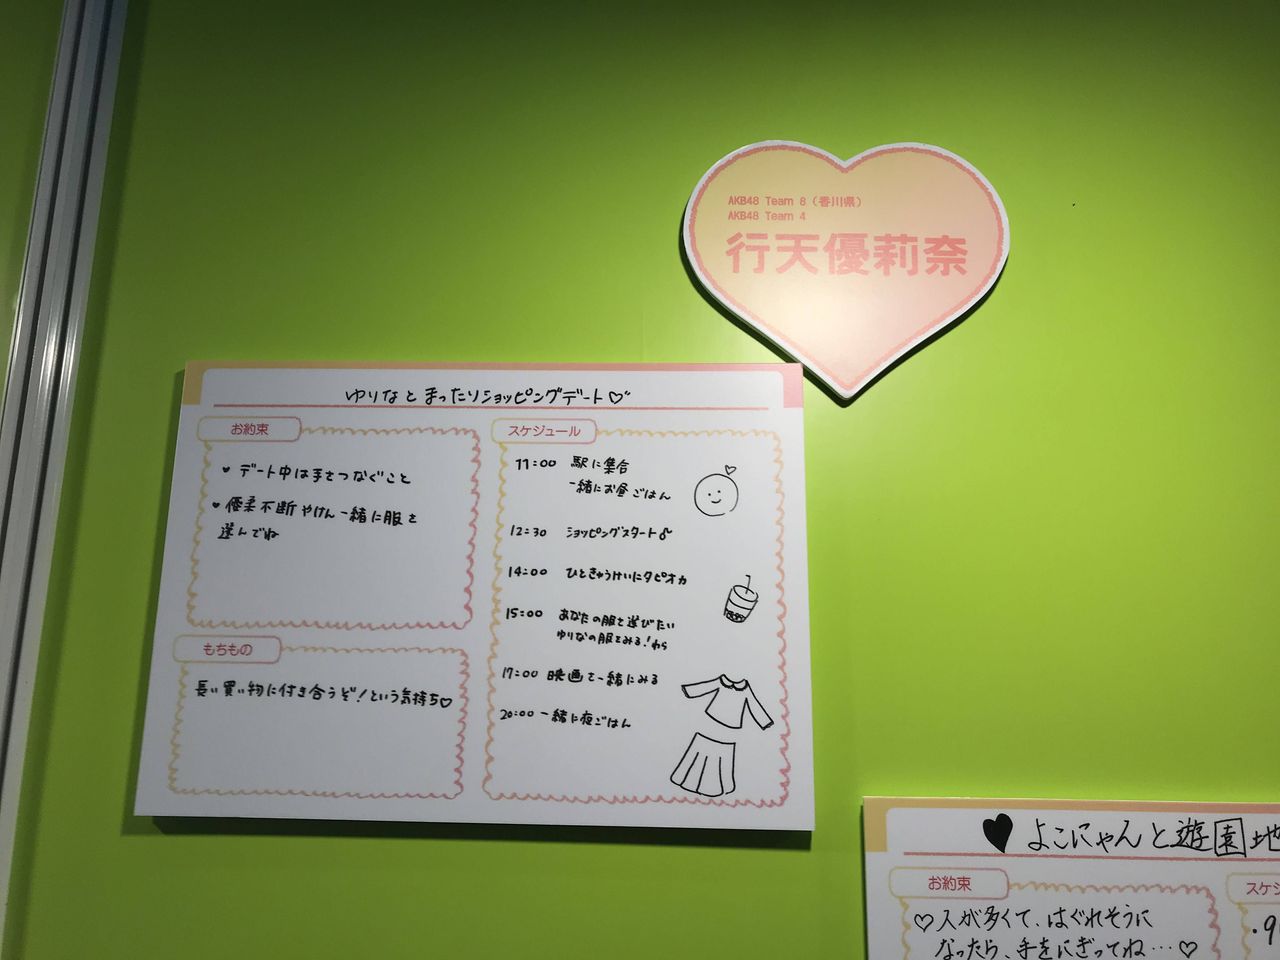 AKB48 Team 8（香川県）
AKB48 Team 4
行天優莉奈
ゆりなとまったりショッピングデート♡
お約束
♥デート中は手をつなぐこと
♥優柔不断やけん一緒に服を
選んでね
もちもの
長い買い物に付き合うぞ！という気持ち♡
スケジュール
11:00 駅に集合
一緒にお昼ごはん
12:30 ショッピングスタート♪
14:00 ひときゅうけいにタピオカ
15:00 あなたの服を選びたい
ゆりなの服をみる！わら
17:00 映画を一緒にみる
20:00 一緒に夜ごはん
♥よこにゃんと遊園地
お約束
♡人が多くて、はぐれそうに
なったら、手をにぎってね…♡
スケジ